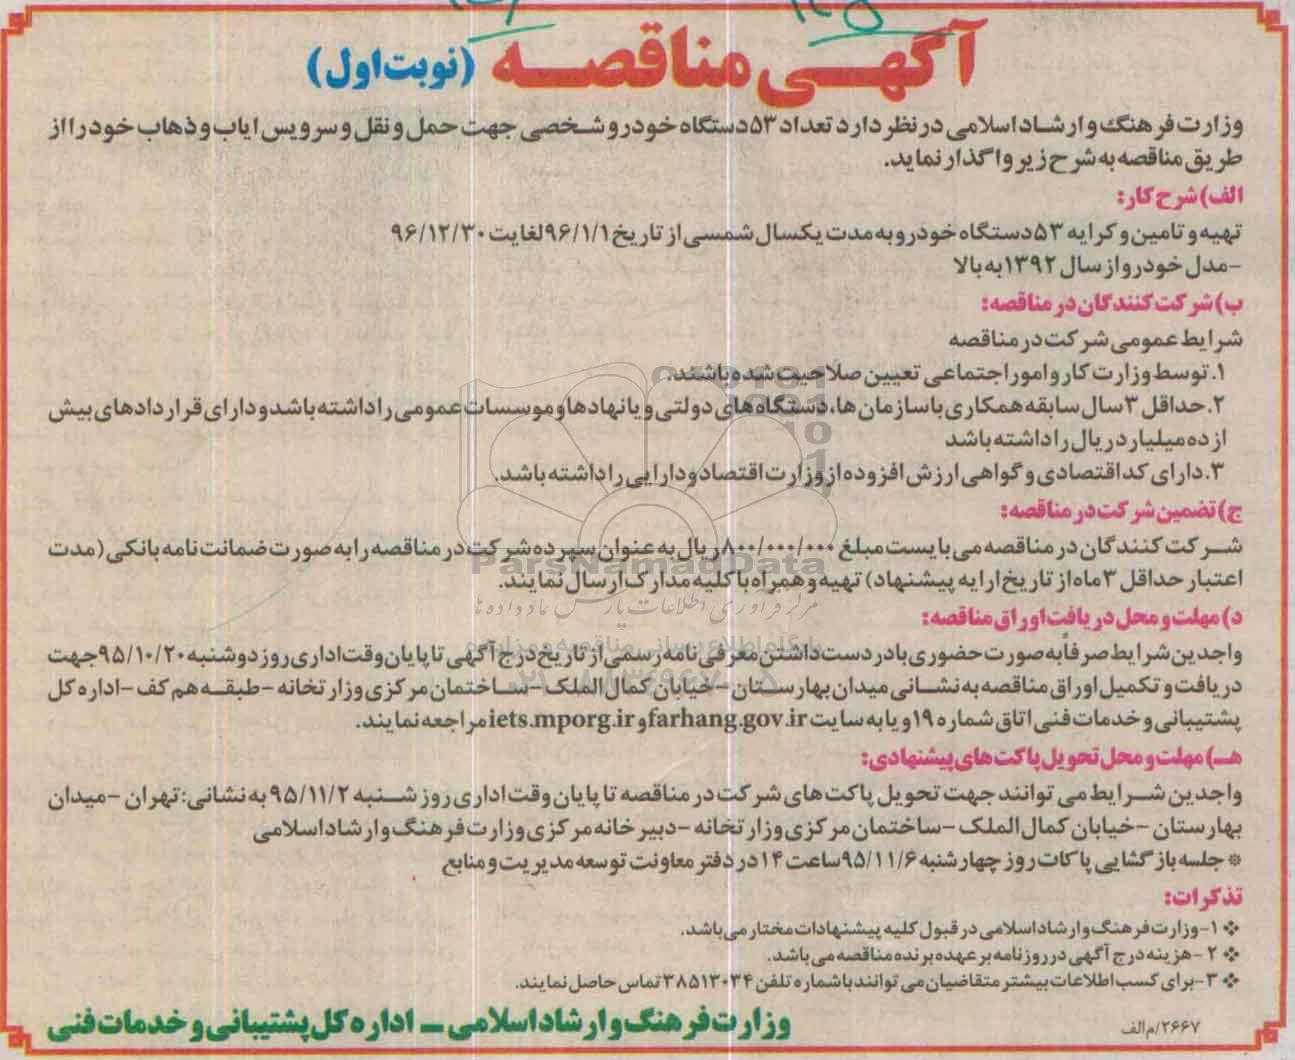 آگهی مناقصه (نوبت اول)
وزارت فرهنگ و ارشاد اسلامی در نظر دارد تعداد ۵۳ دستگاه خودرو شخصی جهت حمل و نقل و سرویس ایاب و ذهاب خود را از
طریق مناقصه به شرح زیر واگذار نماید.
الف) شرح کار:
تهیه و تامین و کرایه ۵۳ دستگاه خودرو به مدت یکسال شمسی از تاریخ ۹۶/۱/۱ لغایت ۹۶/۱۲/۳۰
-مدل خودرو از سال ۱۳۹۲ به بالا
ب) شرکت کنندگان در مناقصه:
شرایط عمومی شرکت در مناقصه
۱. توسط وزارت کار و امور اجتماعی تعیین صلاحیت شده باشند.
۲. حداقل ۳ سال سابقه همکاری با سازمان ها، دستگاه های دولتی و یا نهادها و موسسات عمومی را داشته باشد و دارای قراردادهای بیش
از ده میلیارد ریال را داشته باشد
۳. دارای کد اقتصادی و گواهی ارزش افزوده از وزارت اقتصاد و دارایی را داشته باشد.
ج) تضمین شرکت در مناقصه:
شرکت کنندگان در مناقصه می بایست مبلغ ۸۰۰/۰۰۰/۰۰۰ ریال به عنوان سپرده شرکت در مناقصه را به صورت ضمانت نامه بانکی (مدت
اعتبار حداقل ۳ ماه از تاریخ ارایه پیشنهاد) تهیه و همراه با کلیه مدارک ارسال نمایند.
ParsNamadData
مرکز فرآوری اطلاعات پارس نماد داده ها
د) مهلت و محل دریافت اوراق مناقصه:
واجدین شرایط صرفاً به صورت حضوری با در دست داشتن معرفی نامه رسمی از تاریخ درج آگهی تا پایان وقت اداری روز دوشنبه ۹۵/۱۰/۲۰ جهت
دریافت و تکمیل اوراق مناقصه به نشانی میدان بهارستان - خیابان کمال الملک - ساختمان مرکزی وزارتخانه - طبقه هم کف - اداره کل
پشتیبانی و خدمات فنی اتاق شماره ۱۹ و یا به سایت farhang.gov.ir و iets.mporg.ir مراجعه نمایند.
هـ) مهلت و محل تحویل پاکت های پیشنهادی:
واجدین شرایط می توانند جهت تحویل پاکت های شرکت در مناقصه تا پایان وقت اداری روز شنبه ۹۵/۱۱/۲ به نشانی: تهران - میدان
بهارستان - خیابان کمال الملک - ساختمان مرکزی وزارتخانه - دبیرخانه مرکزی وزارت فرهنگ و ارشاد اسلامی
* جلسه بازگشایی پاکات روز چهارشنبه ۹۵/۱۱/۶ ساعت ۱۴ در دفتر معاونت توسعه مدیریت و منابع
تذکرات:
❖ ۱- وزارت فرهنگ و ارشاد اسلامی در قبول کلیه پیشنهادات مختار می باشد.
❖ ۲- هزینه درج آگهی در روزنامه بر عهده برنده مناقصه می باشد.
❖ ۳- برای کسب اطلاعات بیشتر متقاضیان می توانند با شماره تلفن ۳۸۵۱۳۰۳۴ تماس حاصل نمایند.
وزارت فرهنگ و ارشاد اسلامی ــ اداره کل پشتیبانی و خدمات فنی
۲۶۶۷/م الف